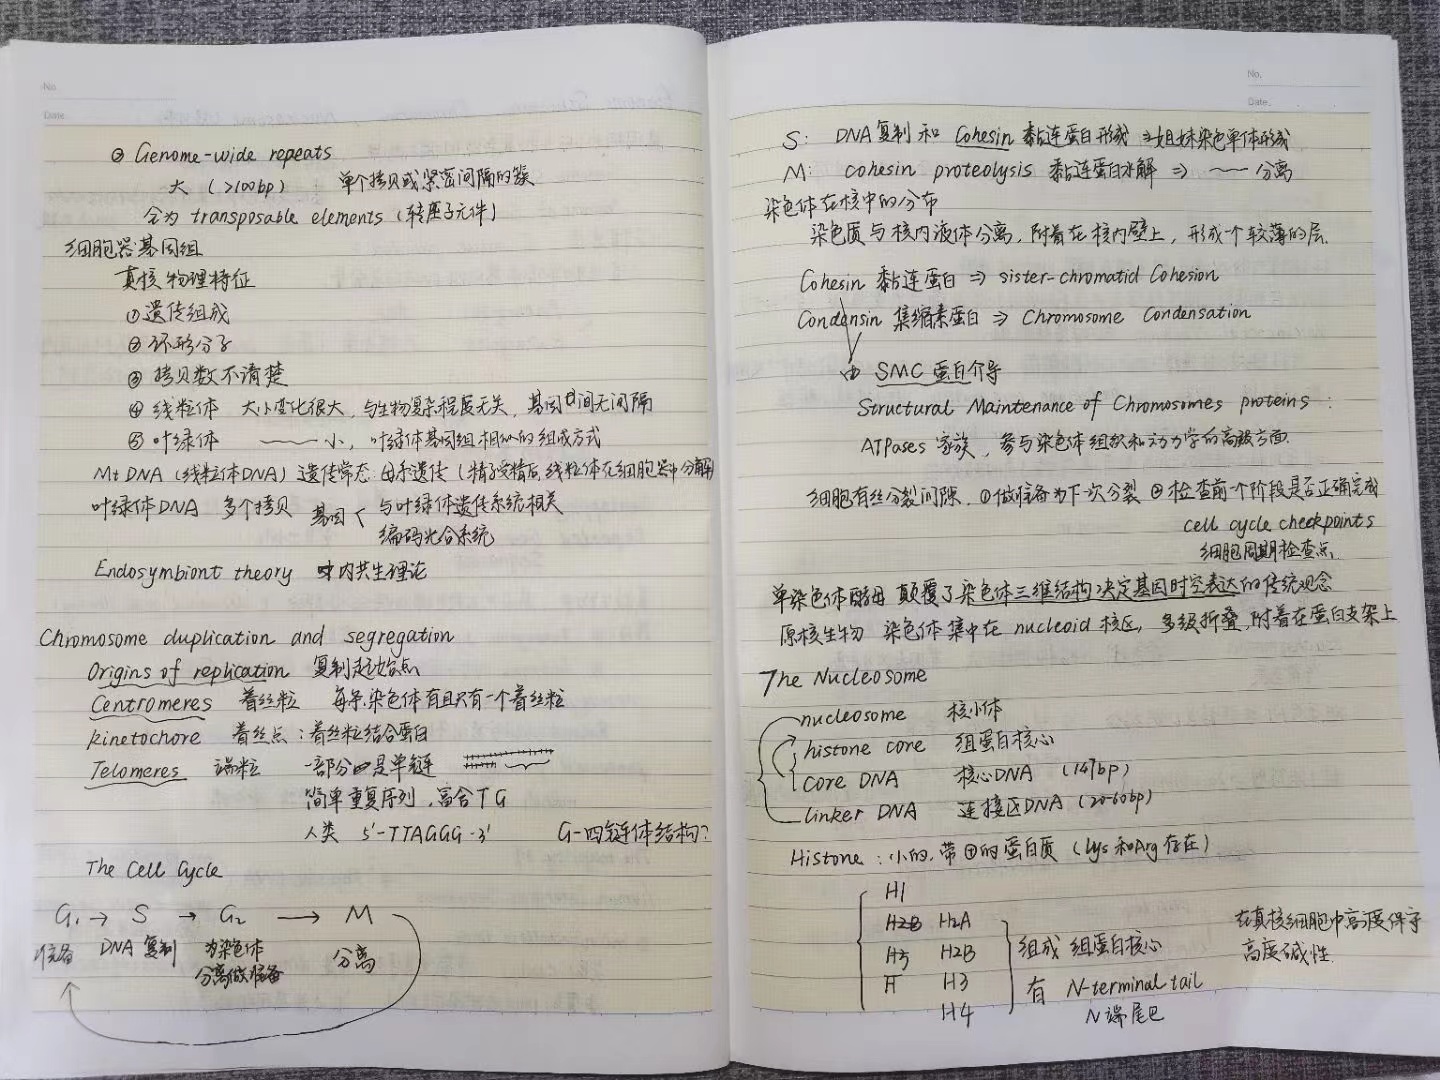 No.
Date.
② Genome-wide repeats
大 (>100bp) 单个拷贝或紧密间隔的簇
全为 transposable elements (转座子元件)
细胞器基因组
真核物理特征
①遗传组成
②环形分子
③ 拷贝数不清楚
④ 线粒体 大小变化很大, 与生物复杂程度无关, 基因间无间隔
⑤ 叶绿体 小, 叶绿体基因组相似的组成方式
Mt DNA (线粒体DNA) 遗传常态: 母系遗传 (精子受精后, 线粒体在细胞器中分解)
叶绿体DNA 多个拷贝 基因 < 与叶绿体遗传系统相关
编码光合系统
Endosymbiont theory 内共生理论
Chromosome duplication and segregation
Origins of replication 复制起始点
Centromeres 着丝粒 每条染色体有且只有一个着丝粒
kinetochore 着丝点: 着丝粒结合蛋白
Telomeres 端粒 一部分是单链
简单重复序列, 富含TG
人类 5'-TTAGGG-3' G-四链体结构?
The Cell Cycle
G₁ → S → G₂ → M
准备 DNA复制 为染色体 分离
分离做准备
No.
Date.
S: DNA复制和 Cohesin 黏连蛋白形成 ⇒ 姐妹染色单体形成
M: cohesin proteolysis 黏连蛋白水解 ⇒ 分离
染色体在核中的分布
染色质与核内液体分离, 附着在核内壁上, 形成一个较薄的层.
Cohesin 黏连蛋白 ⇒ sister-chromatid Cohesion
Condensin 集缩素蛋白 ⇒ Chromosome Condensation
由 SMC 蛋白介导
Structural Maintenance of Chromosomes proteins:
ATPases 家族, 参与染色体组织和动力学的高级方面.
细胞有丝分裂间隙. ①做准备为下次分裂 ②检查前一个阶段是否正确完成
cell cycle checkpoints
细胞周期检查点
单染色体酵母 颠覆了染色体三维结构决定基因时空表达的传统观念
原核生物 染色体集中在 nucleoid 核区, 多级折叠, 附着在蛋白支架上
The Nucleosome
nucleosome 核小体
histone core 组蛋白核心
core DNA 核心DNA (147bp)
linker DNA 连接区DNA (20-60bp)
Histone: 小的, 带⊕的蛋白质 (Lys和Arg存在)
H1
H2B H2A
H3 H2B 组成 组蛋白核心 在真核细胞中高度保守
H3 有 N-terminal tail 高度碱性.
H4 N端尾巴